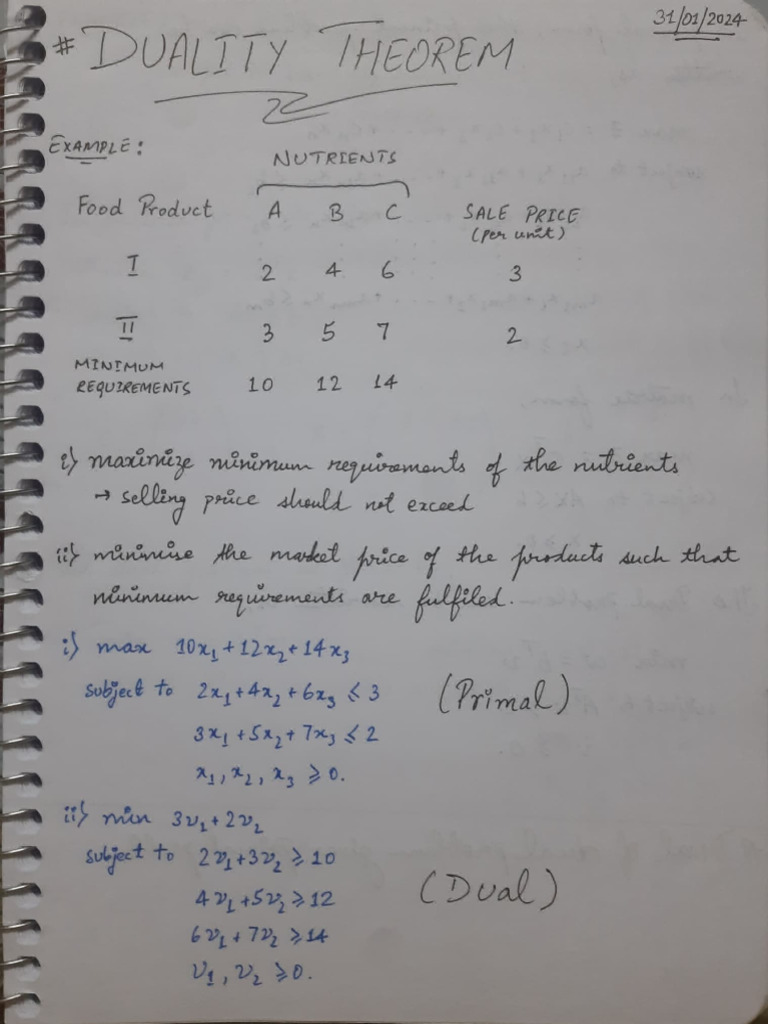 31/01/2024
# DUALITY THEOREM
EXAMPLE:
NUTRIENTS
Food Product A B C SALE PRICE
(per unit)
I 2 4 6 3
II 3 5 7 2
MINIMUM
REQUIREMENTS 10 12 14
i) maximize minimum requirements of the nutrients
→ selling price should not exceed
ii) minimise the market price of the products such that
minimum requirements are fulfiled.
i) max 10x₁ + 12x₂ + 14x₃
subject to 2x₁ + 4x₂ + 6x₃ ⩽ 3 (Primal)
3x₁ + 5x₂ + 7x₃ ⩽ 2
x₁, x₂, x₃ ⩾ 0.
ii) min 3v₁ + 2v₂
subject to 2v₁ + 3v₂ ⩾ 10
4v₁ + 5v₂ ⩾ 12 (Dual)
6v₁ + 7v₂ ⩾ 14
v₁, v₂ ⩾ 0.